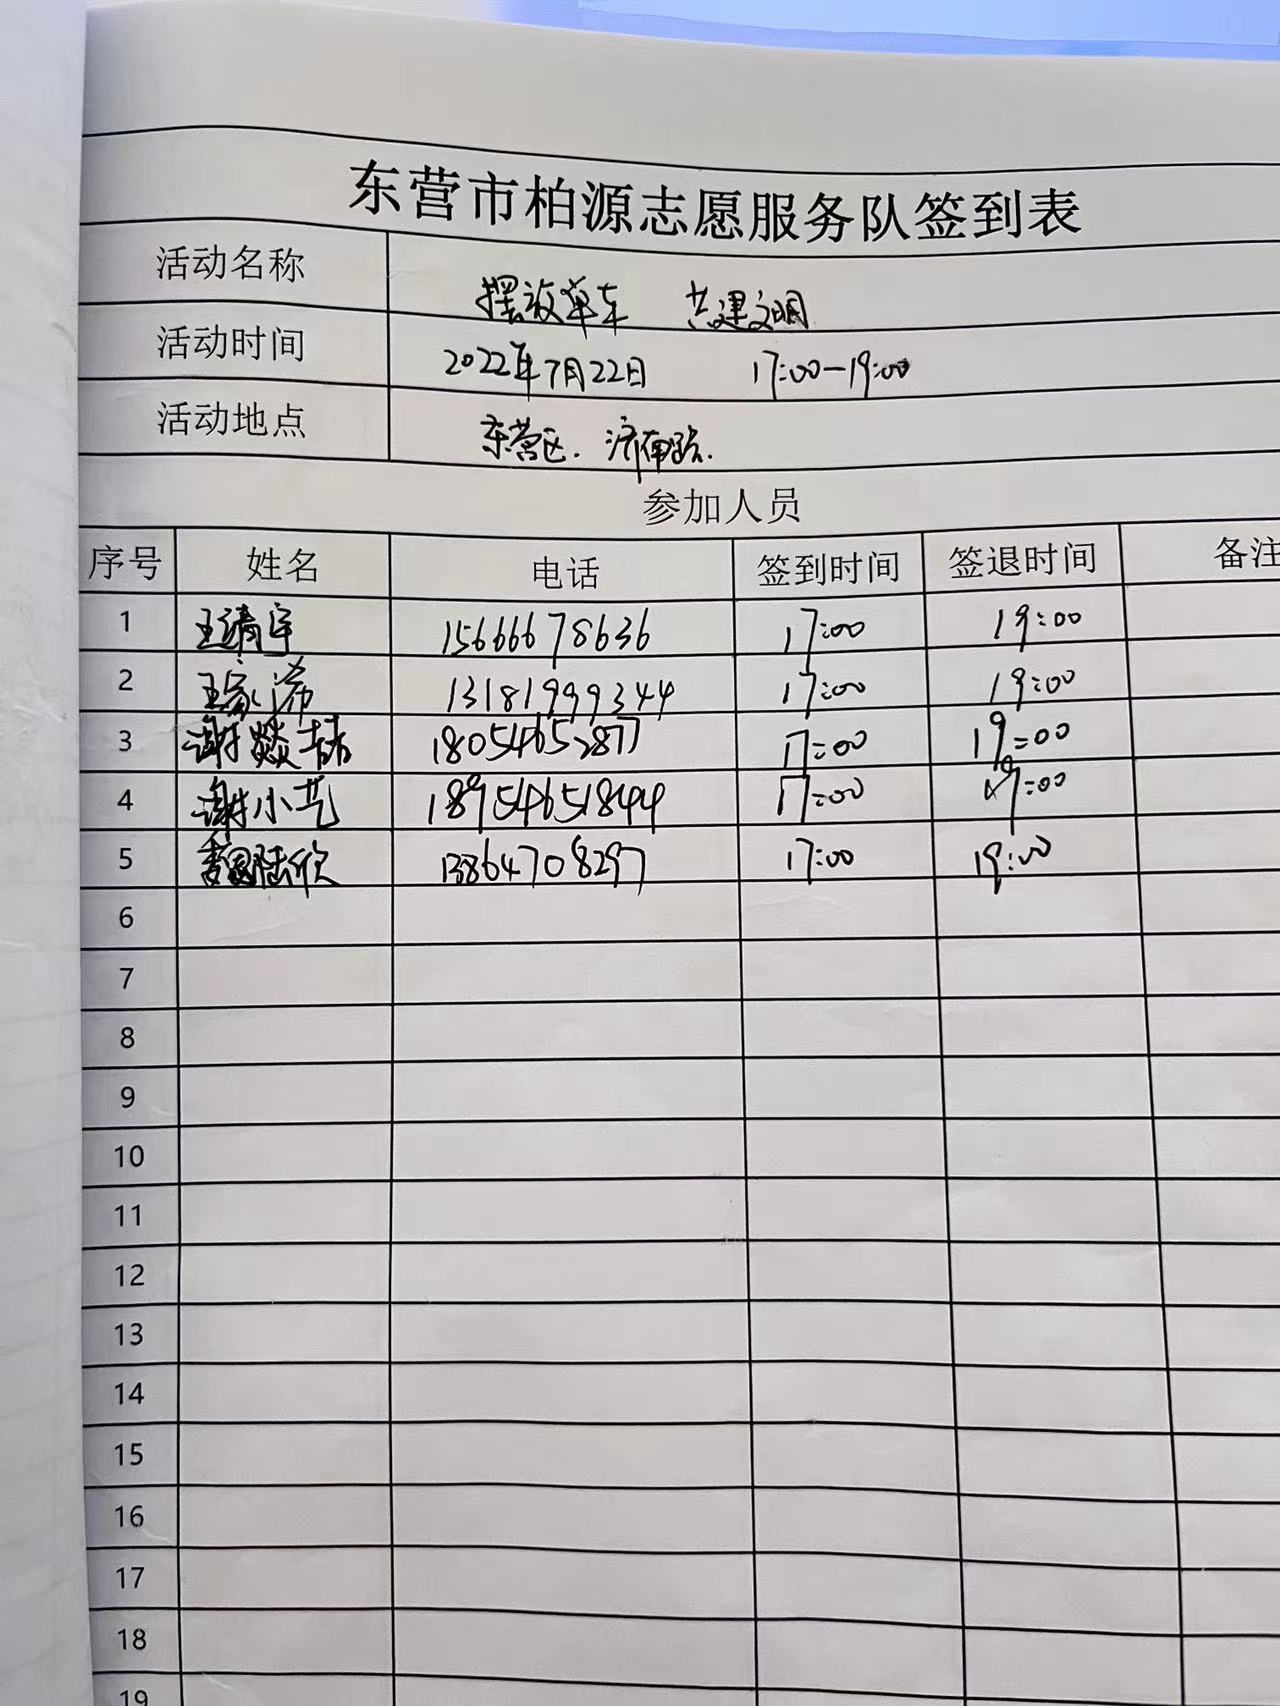 东营市柏源志愿服务队签到表
活动名称 摆放单车 共建文明
活动时间 2022年7月22日 17:00-19:00
活动地点 东营区.济南路.
参加人员
序号 姓名 电话 签到时间 签退时间 备注
1 王靖宇 15666678636 17:00 19:00
2 王家浠 13181999344 17:00 19:00
3 谢燚喆 18054652877 17:00 19:00
4 谢小艺 18954651844 17:00 19:00
5 13864708297 17:00 19:00
6
7
8
9
10
11
12
13
14
15
16
17
18
19